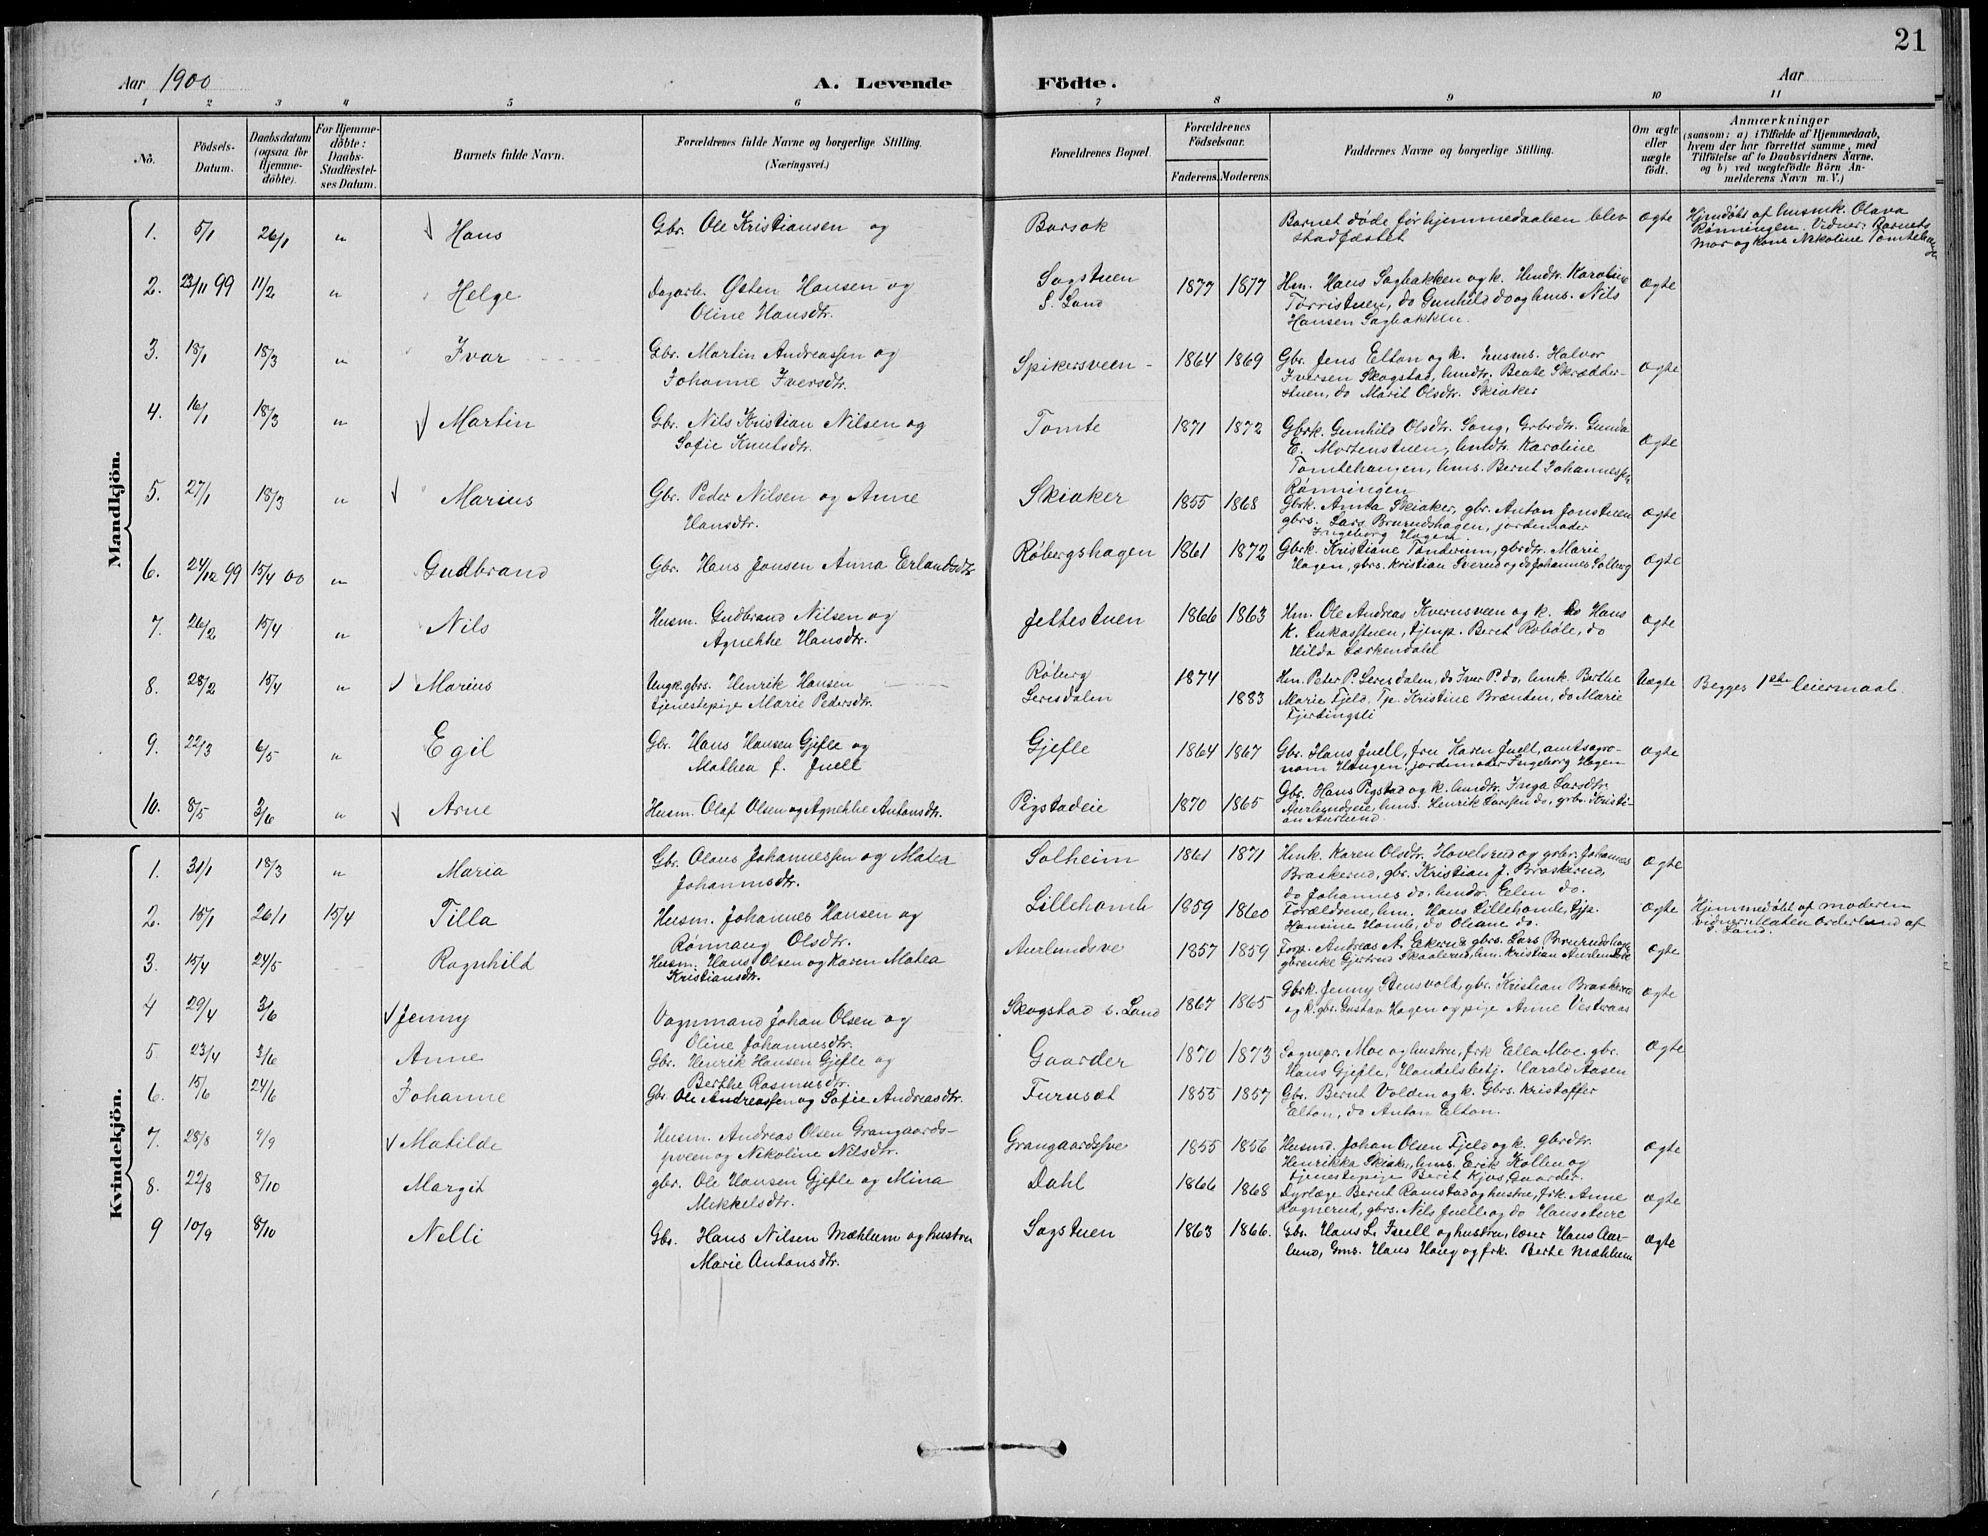 21
Aar 1900
A. Levende Födte.
Aar
1 2 3 4 5 6 7 8 9 10 11
No.
Födsels-Datum.
Daabsdatum (ogsaa for Hjemmedöbte).
For Hjemmedöbte: Daabs-Stadfestelses Datum.
Barnets fulde Navn.
Forældrenes fulde Navne og borgerlige Stilling. (Næringsvei.)
Forældrenes Bopæl.
Forældrenes Födselsaar. Faderens. Moderens.
Faddernes Navne og borgerlige Stilling.
Om ægte eller uægte födt.
Anmærkninger (saasom: a) i Tilfælde af Hjemmedaab, hvem der har forrettet samme, med Tilföielse af to Daabsvidners Navne, og b) ved uægtefödte Börn Anmelderens Navn m. V.)
Mandkjön.
1. 5/1 26/1 " Hans Gbr. Ole Kristiansen og Barsok Barnet døde før hjemmedaaben blev stadfæstet Ægte Hjemdøbt af husmk. Olava Rønningen. Vidner: Barnets Mor og kone Nikoline Tomtehaugen
2. 23/11 99 11/2 " Helge Dagarb. Østen Hansen og Oline Hansdtr. Sagstuen S. Land 1877 1877 Hm. Hans Sagbakken og k. Hmdtr. Karoline Torristuen, do Gunhild do og hms. Nils Hansen Sagbakken. Ægte
3. 18/1 18/3 " Ivar Gbr. Martin Andreassen og Johanne Iversdtr. Spikersveen 1864 1869 Gbr. Jens Elton og k. husms. Halvor Iversen Skogstad, hmdtr. Beate Skrædderstuen, do Marit Olsdtr. Skiaker Ægte
4. 16/1 18/3 " Martin Gbr. Nils Kristian Nilsen og Sofie Knutsdtr. Tomte 1871 1872 Gbrk. Gunhild Olsdtr. Song, Grbrdtr. Gunda E. Mortenstuen, hmdtr. Karoline Tomtehaugen, hms. Bernt Johannessen Rønningen Ægte
5. 27/1 18/3 " Marius Gbr. Peder Nilsen og Anne Hansdtr. Skiaker 1855 1868 Gbrk. Anna Skiaker, gbr. Anton Jonstuen gbrs. Lars Brurudshagen, jordemoder Ingeborg Hagen Ægte
6. 24/12 99 15/4 00 " Gudbrand Gbr. Hans Jonsen Anna Erlandsdtr Røbergshagen 1861 1872 Gbrk. Kristiane Tønderum, gbrdtr. Marie Hagen, gbrs. Kristian Sverud og do Johannes Solberg Ægte
7. 26/2 15/4 " Nils Husm. Gudbrand Nilsen og Agnethe Hansdtr. Jettestuen 1866 1863 Hm. Ole Andreas Kvernsveen og k. do Hans K. Lukasstuen, tjenp. Beret Robøle, do Hilda Lærkendahl Ægte
8. 28/2 15/4 " Marius Ungk. gbrs. Henrik Hansen tjenestepige Marie Pedersdtr. Røberg Leresdalen 1874 1883 Hm. Peter P. Leresdalen, do Iver P. do, hmk. Berthe Marie Fjeld, Tp. Kristine Brænden, do Marie Fjertingsli Uægte Begges 1ste leiermaal.
9. 22/3 6/5 " Egil Gbr. Hans Hansen Gjefle og Mathea f. Juell Gjefle 1864 1867 Gbr. Hans Juell, fru Karen Juell, amtsagronom Haugen, jordemoder Ingeborg Hagen Ægte
10. 8/5 3/6 " Arne Husm. Olaf Olsen og Agnethe Antonsdtr. Pigstadeie 1870 1865 Gbr. Hans Pigstad og k. hmdtr. Inga Larsdtr. Aurlundseie, hms. Henrik Larsen do, grbr. Kristian Aurlund. Ægte
Kvindekjön.
1. 31/1 18/3 " Maria Gbr. Olaus Johannessen og Matea Johannesdtr. Solheim 1861 1871 Hmk. Karen Olsdtr. Hovelsrud og grbr. Johannes Braskerud, gbr. Kristian J. Braskerud, do Johannes do, hmdr. Elen do. Ægte
2. 15/1 26/1 15/4 Tilla Husm. Johannes Hansen og Rønnaug Olsdtr. Lillehomb 1859 1860 Forældrene, hm. Hans Lillehomb, tjp. Hansine Homb, do Oleane do. Ægte Hjemmedøbt af moderen vidner: Maten Orderlund af S. Land.
3. 15/4 24/5 Ragnhild Husm. Hans Olsen og Karen Matea Kristiansdtr. Aurlundsve 1857 1859 Forp. Andreas A. Ekernd gbrs. Lars Brurudshage gbrenke Gjertrud Skaalerud, hm. Kristian Aurlundseie Ægte
4 29/4 3/6 Jenny Vognmand Johan Olsen og Oline Johannesdtr. Skogstad S. Land 1867 1865 Gbrk. Jenny Stensvold, gbr. Kristian Braskerud og k. gbr. Gustav Hagen og pige Anne Vesteraas Ægte
5 23/4 3/6 Anne Gbr. Henrik Hansen Gjefle og Berthe Rasmusdtr. Gaarder 1870 1873 Sognepr. Moe og hustru, frk Ella Moe. gbr. Hans Gjefle, Handelsbetj. Harald Aasen Ægte
6. 15/6 24/6 Johanne Gbr. Ole Andreassen og Sofie Andreasdtr. Furuset 1855 1857 Gbr. Bernt Volden og k. Gbrs. Kristoffer Elton, do Anton Elton.
7. 28/8 9/9 Matilde Husm. Andreas Olsen Grangaardsveen og Nikoline Nilsdtr. Grangaardsve 1855 1856 Husmd. Johan Olsen Fjeld og k. gbrdtr. Henrikka Skiaker, hms. Erik Kollen og tjenestepige Berit Kjos, Gaarder. Ægte
8. 22/8 8/10 Margit gbr. Ole Hansen Gjefle og Mina Mikkelsdtr. Dahl 1866 1868 Dyrlæge Bernt Ramstad og hustru, frk. Anne Rognerud, gbrs. Nils Juell og do Hans Aure Ægte
9 10/9 8/10 Nelli Gbr. Hans Nilsen Mæhlum og hustru Marie Antonsdtr. Sagstuen 1863 1866. Gbr. Hans L. Juell og hustru, lærer Hans Aurlund, Gms. Hans Haug og frk. Berte Mæhlum Ægte